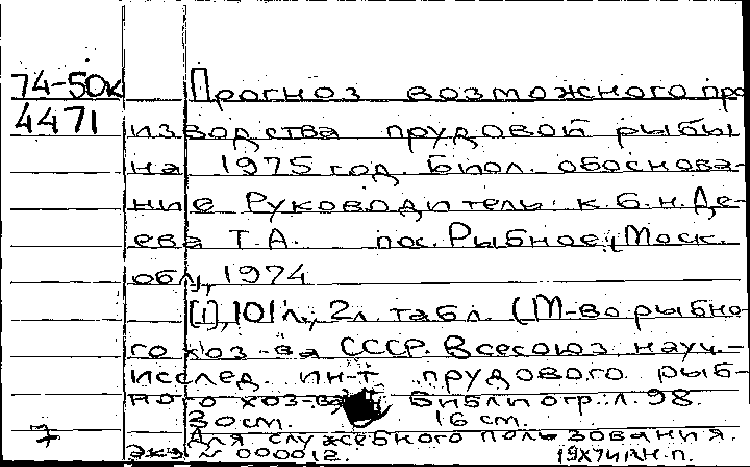 74-50к Прогноз возможного про
4471 изводства прудовой рыбы
на 1975 год. Биол. обоснова-
ние Руководитель: к.б.н. Де-
ева Т.А. пос. Рыбное, Моск.
обл., 1974
[1], 101 л.; 2 л. табл. (М-во рыбно
го хоз-ва СССР. Всесоюз науч.-
исслед. ин-т прудового рыб-
ного хоз-ва Библиогр.: л. 98.
30 см. 16 см.
7 Для служебного пользования.
Экз № 000012.